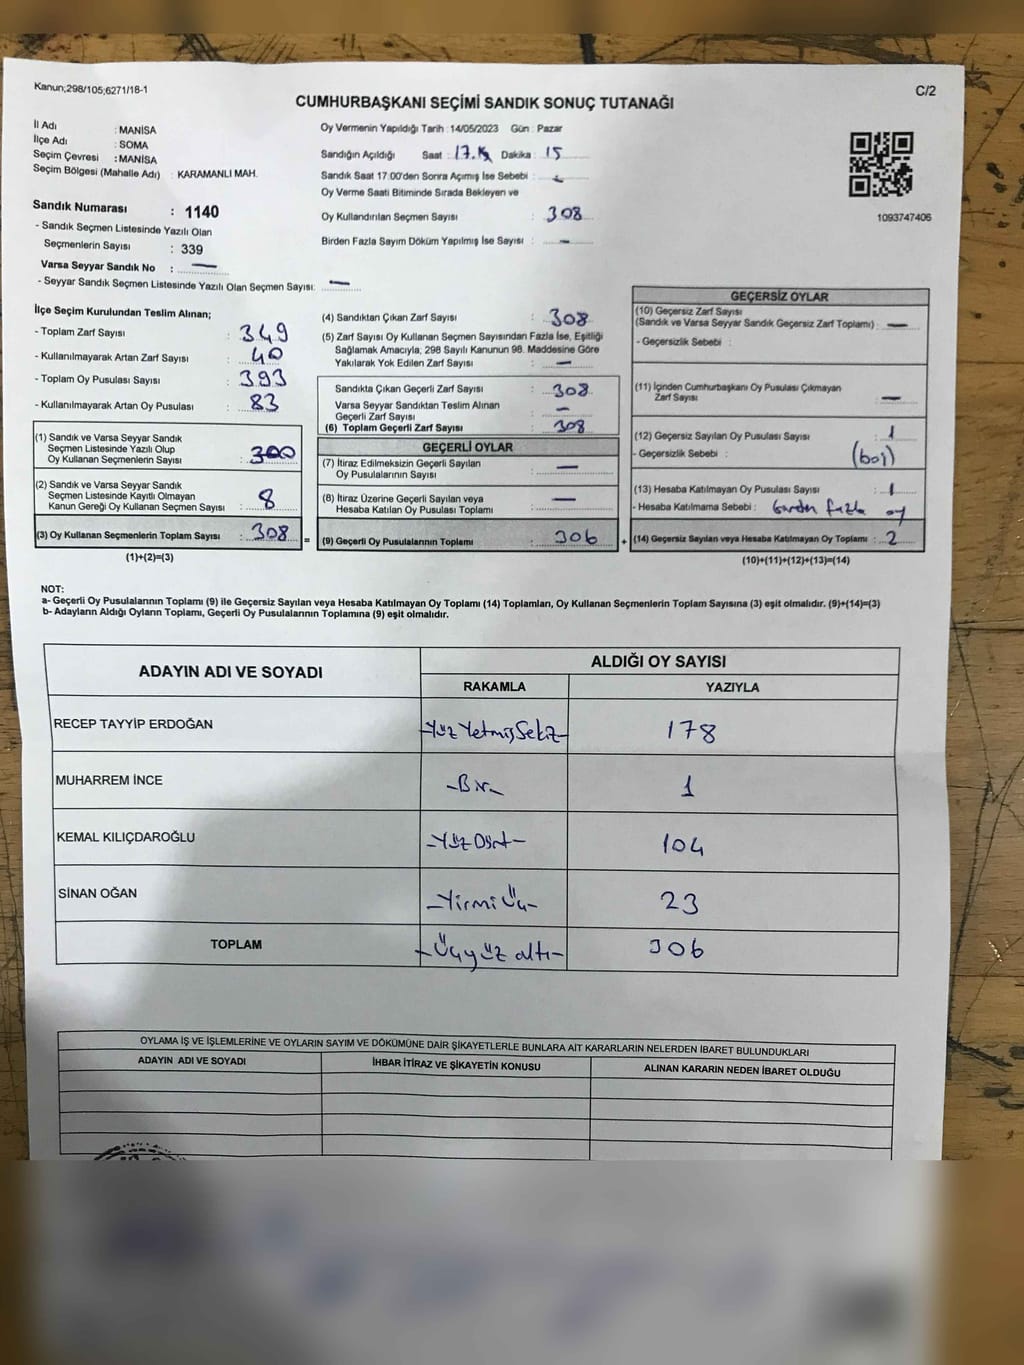 Kanun;298/105;6271/18-1
C/2
CUMHURBAŞKANI SEÇİMİ SANDIK SONUÇ TUTANAĞI
İl Adı : MANİSA
İlçe Adı : SOMA
Seçim Çevresi : MANİSA
Seçim Bölgesi (Mahalle Adı) : KARAMANLI MAH.
Sandık Numarası : 1140
- Sandık Seçmen Listesinde Yazılı Olan
Seçmenlerin Sayısı : 339
Varsa Seyyar Sandık No : —
- Seyyar Sandık Seçmen Listesinde Yazılı Olan Seçmen Sayısı: —
Oy Vermenin Yapıldığı Tarih : 14/05/2023 Gün : Pazar
Sandığın Açıldığı Saat : 17. Dakika : 15
Sandık Saat 17:00'den Sonra Açımış İse Sebebi :
Oy Verme Saati Bitiminde Sırada Bekleyen ve
Oy Kullandırılan Seçmen Sayısı : 308
Birden Fazla Sayım Döküm Yapılmış İse Sayısı : —
1093747406
İlçe Seçim Kurulundan Teslim Alınan;
- Toplam Zarf Sayısı : 349
- Kullanılmayarak Artan Zarf Sayısı : 40
- Toplam Oy Pusulası Sayısı : 393
- Kullanılmayarak Artan Oy Pusulası : 83
(1) Sandık ve Varsa Seyyar Sandık
Seçmen Listesinde Yazılı Olup
Oy Kullanan Seçmenlerin Sayısı : 300
(2) Sandık ve Varsa Seyyar Sandık
Seçmen Listesinde Kayıtlı Olmayan
Kanun Gereği Oy Kullanan Seçmen Sayısı : 8
(3) Oy Kullanan Seçmenlerin Toplam Sayısı : 308
(1)+(2)=(3)
=
(4) Sandıktan Çıkan Zarf Sayısı : 308
(5) Zarf Sayısı Oy Kullanan Seçmen Sayısından Fazla İse, Eşitliği
Sağlamak Amacıyla, 298 Sayılı Kanunun 98. Maddesine Göre
Yakılarak Yok Edilen Zarf Sayısı : —
Sandıkta Çıkan Geçerli Zarf Sayısı : 308
Varsa Seyyar Sandıktan Teslim Alınan
Geçerli Zarf Sayısı : —
(6) Toplam Geçerli Zarf Sayısı : 308
GEÇERLİ OYLAR
(7) İtiraz Edilmeksizin Geçerli Sayılan
Oy Pusulalarının Sayısı : —
(8) İtiraz Üzerine Geçerli Sayılan veya
Hesaba Katılan Oy Pusulası Toplamı : —
(9) Geçerli Oy Pusulalarının Toplamı : 306
+
GEÇERSİZ OYLAR
(10) Geçersiz Zarf Sayısı
(Sandık ve Varsa Seyyar Sandık Geçersiz Zarf Toplamı) : —
- Geçersizlik Sebebi :
(11) İçinden Cumhurbaşkanı Oy Pusulası Çıkmayan
Zarf Sayısı : —
(12) Geçersiz Sayılan Oy Pusulası Sayısı : 1
- Geçersizlik Sebebi : (boş)
(13) Hesaba Katılmayan Oy Pusulası Sayısı : 1
- Hesaba Katılmama Sebebi : birden fazla oy
(14) Geçersiz Sayılan veya Hesaba Katılmayan Oy Toplamı : 2
(10)+(11)+(12)+(13)=(14)
NOT:
a- Geçerli Oy Pusulalarının Toplamı (9) ile Geçersiz Sayılan veya Hesaba Katılmayan Oy Toplamı (14) Toplamları, Oy Kullanan Seçmenlerin Toplam Sayısına (3) eşit olmalıdır. (9)+(14)=(3)
b- Adayların Aldığı Oyların Toplamı, Geçerli Oy Pusulalarının Toplamına (9) eşit olmalıdır.
ADAYIN ADI VE SOYADI ALDIĞI OY SAYISI
RAKAMLA YAZIYLA
RECEP TAYYİP ERDOĞAN -Yüz Yetmiş Sekiz- 178
MUHARREM İNCE -Bir- 1
KEMAL KILIÇDAROĞLU -Yüz Dört- 104
SİNAN OĞAN -Yirmi Üç- 23
TOPLAM -Üçyüz altı- 306
OYLAMA İŞ VE İŞLEMLERİNE VE OYLARIN SAYIM VE DÖKÜMÜNE DAİR ŞİKAYETLERLE BUNLARA AİT KARARLARIN NELERDEN İBARET BULUNDUKLARI
ADAYIN ADI VE SOYADI İHBAR İTİRAZ VE ŞİKAYETİN KONUSU ALINAN KARARIN NEDEN İBARET OLDUĞU